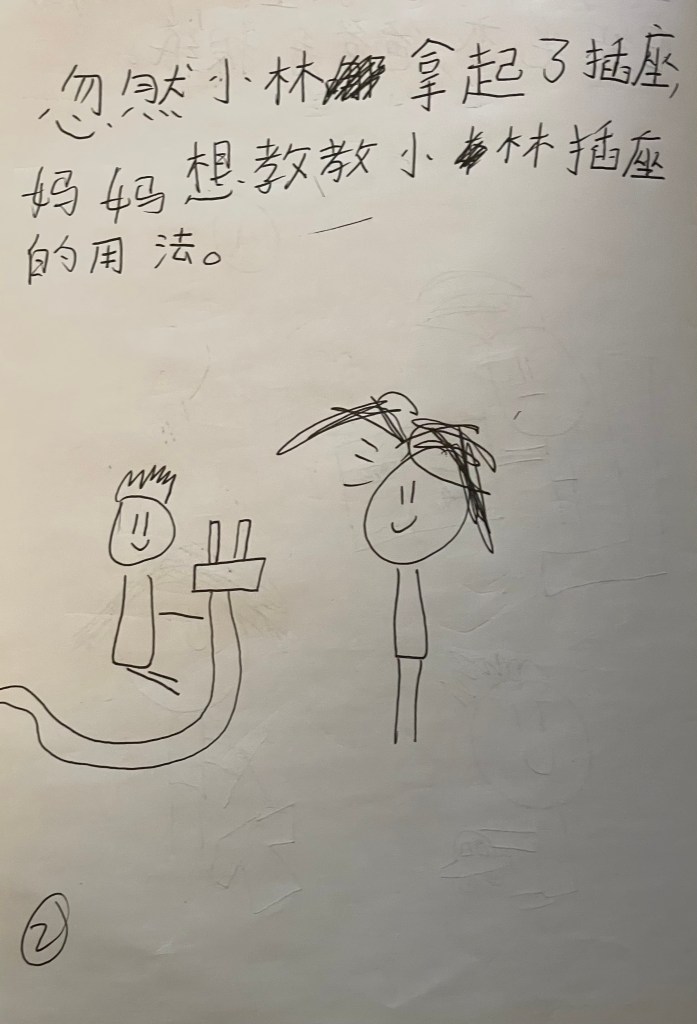 忽然小林拿起了插座,
妈妈想教教小林插座
的用法。
2